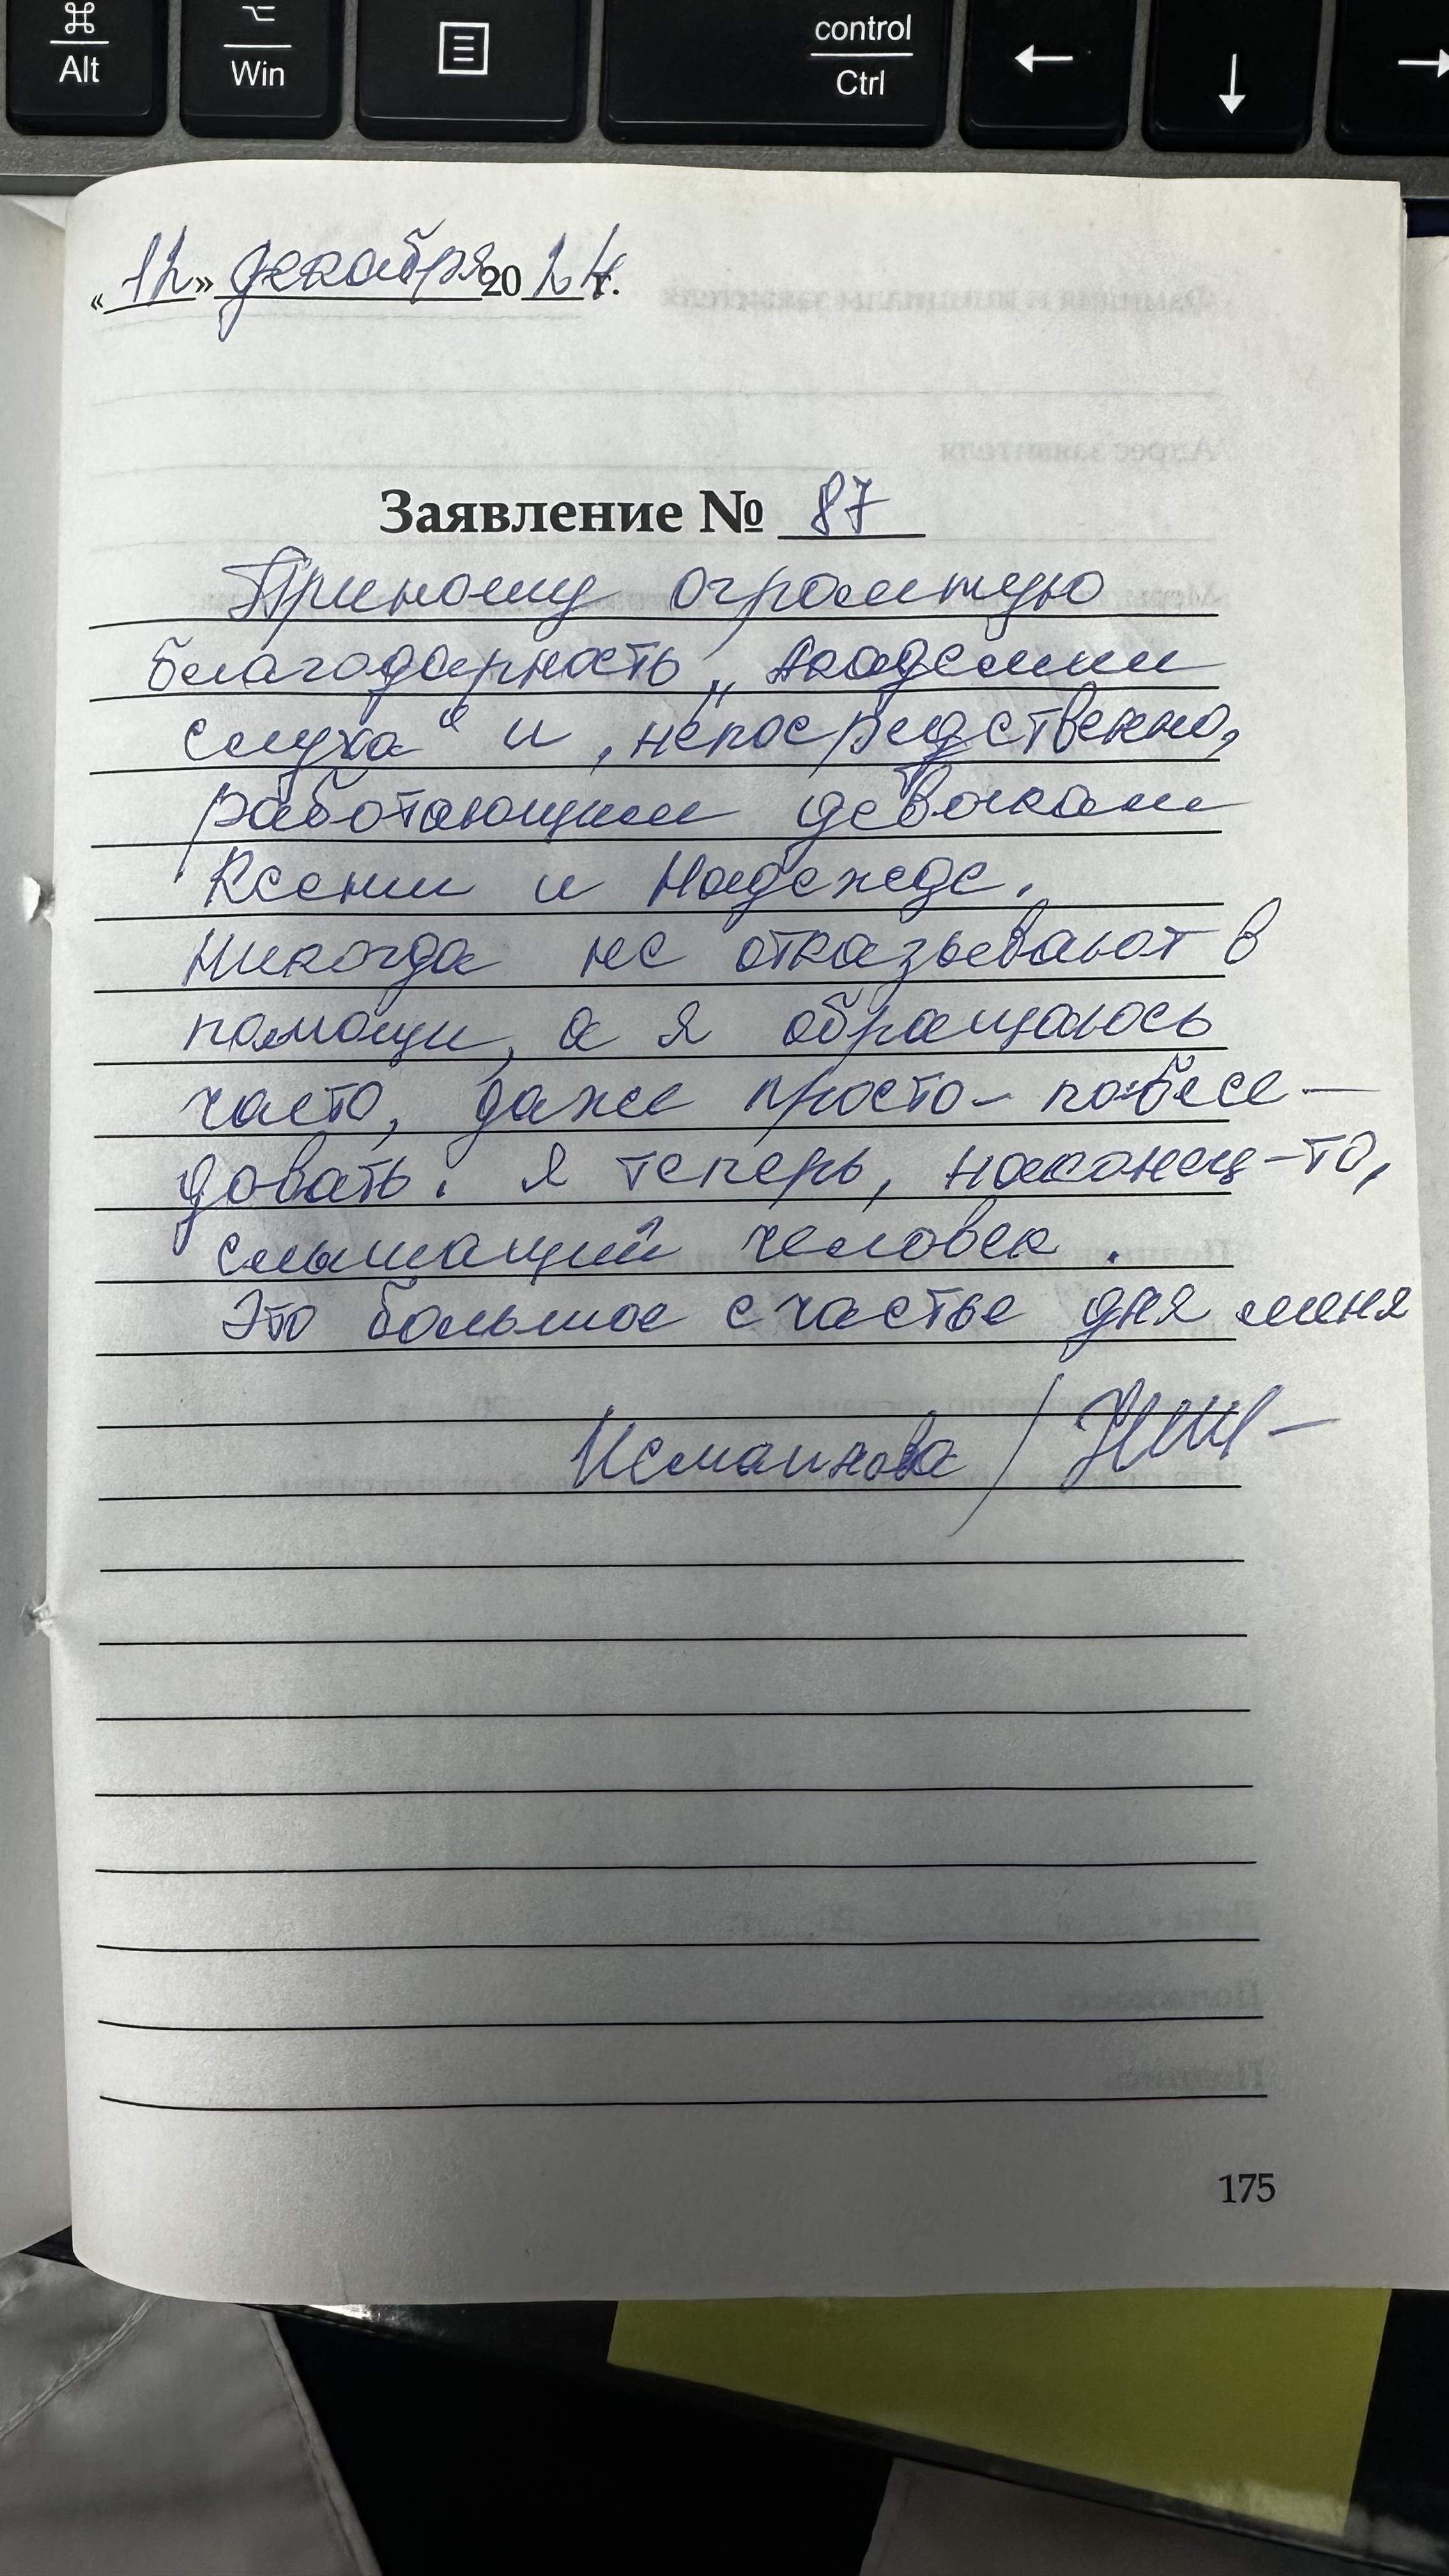 ⌘
Alt
⌥
Win
control
Ctrl
←
↓
→
«12» декабря 2024г.
Заявление № 87
Приношу огромную
благодарность „Академии
слуха“ и, непосредственно,
работающим девочкам
Ксении и Надежде.
Никогда не отказывают в
помощи, а я обращаюсь
часто, даже просто – побесе-
довать. Я теперь, наконец-то,
слышащий человек.
Это большое счастье для меня
175